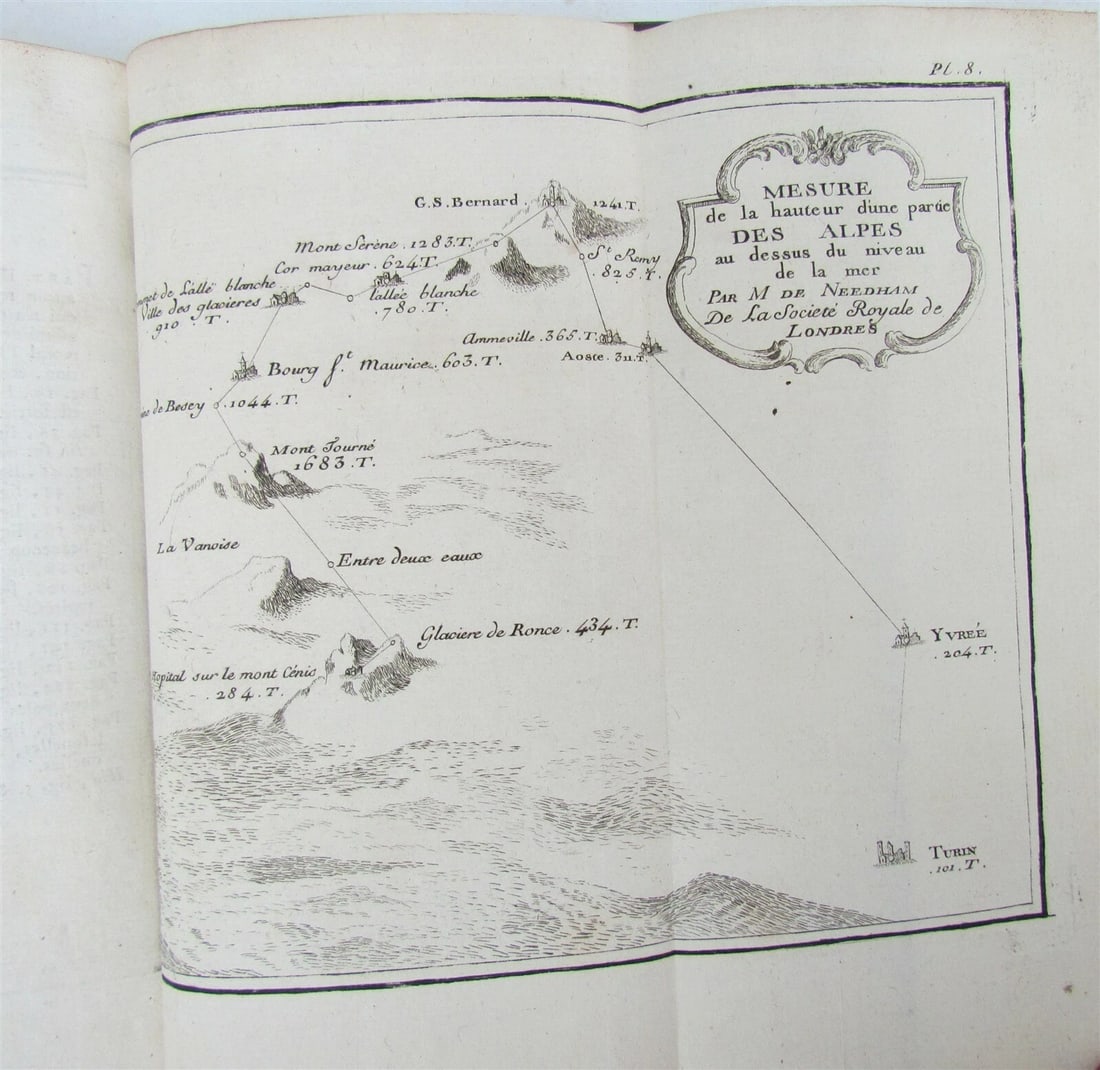 Pl. 8.
MESURE
de la hauteur d'une partie
DES ALPES
au dessus du niveau
de la mer
PAR M DE NEEDHAM
De La Societé Royale de
LONDRES
G.S. Bernard. 1241. T.
Mont Serène. 1283. T.
St Remy
. 825. T.
Cor mayeur. 624 T.
de L'allé blanche
l'allée blanche
. 780. T.
Ville des glacieres
910. T.
Ammeville. 365. T.
Aoste. 311. T.
Bourg St. Maurice. 603. T.
de Besey . 1044. T.
Mont Tourné
1683. T.
La Vanoise
Entre deux eaux
Glaciere de Ronce. 434. T.
opital sur le mont Cénis
. 284. T.
YVREÉ
. 204. T.
TURIN
. 101. T.